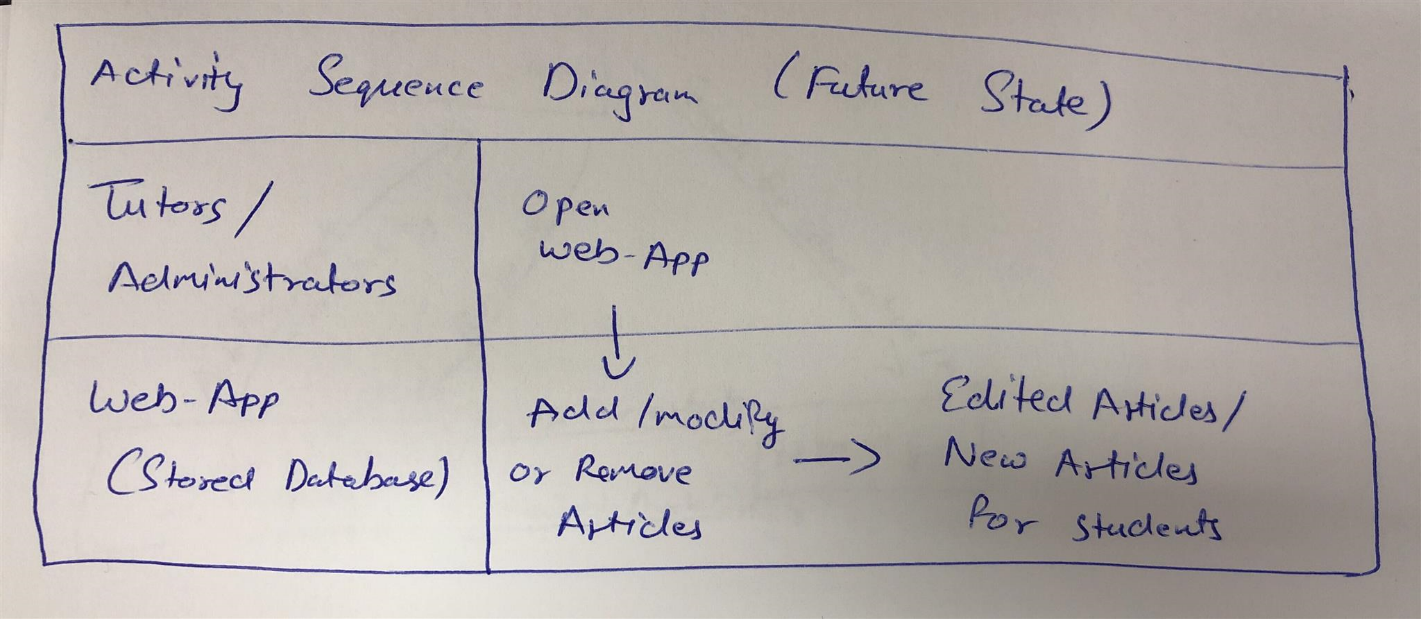 Activity Sequence Diagram (Future State)
Tutors/
Administrators
Open
Web-App
Web-App
(Stored Database)
Add/modify
or Remove
Articles
Edited Articles/
New Articles
for students